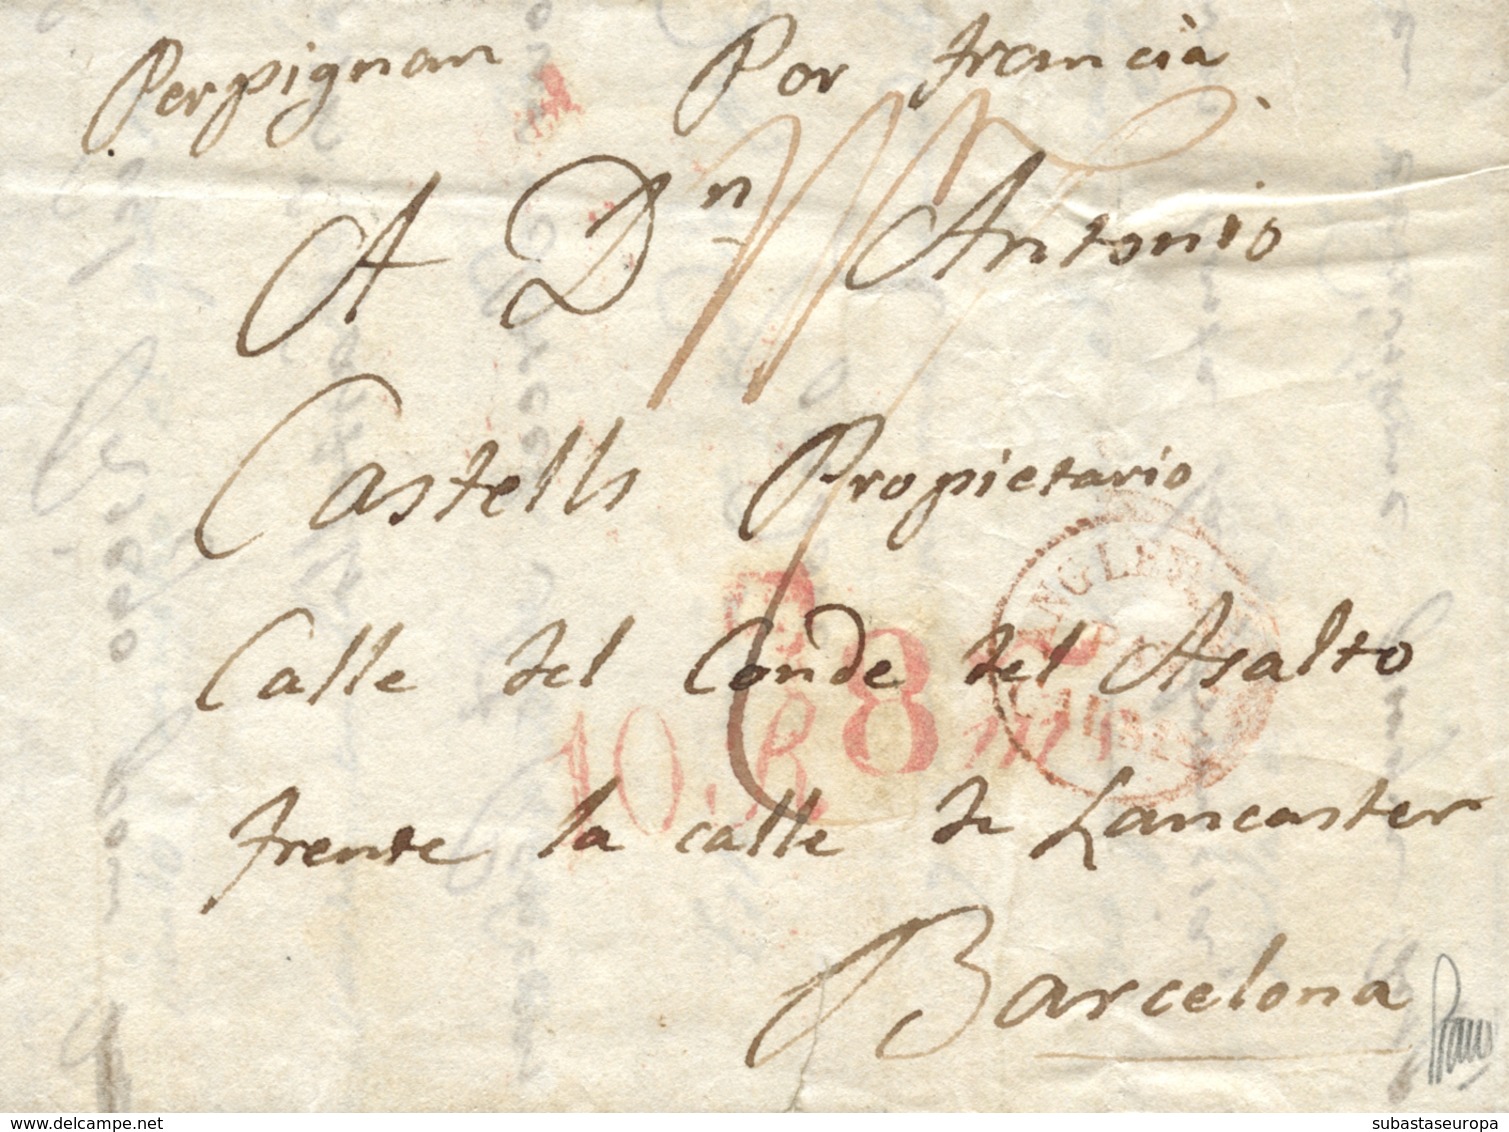 Perpignan Por francia
A Dn Antonio
Castells Propietario
Calle del Conde del Asalto
frente la calle de Lancaster
Barcelona
ANGLETERRE
PAR
CALAIS
8
10 R
www.delcampe.net
subastaseuropa